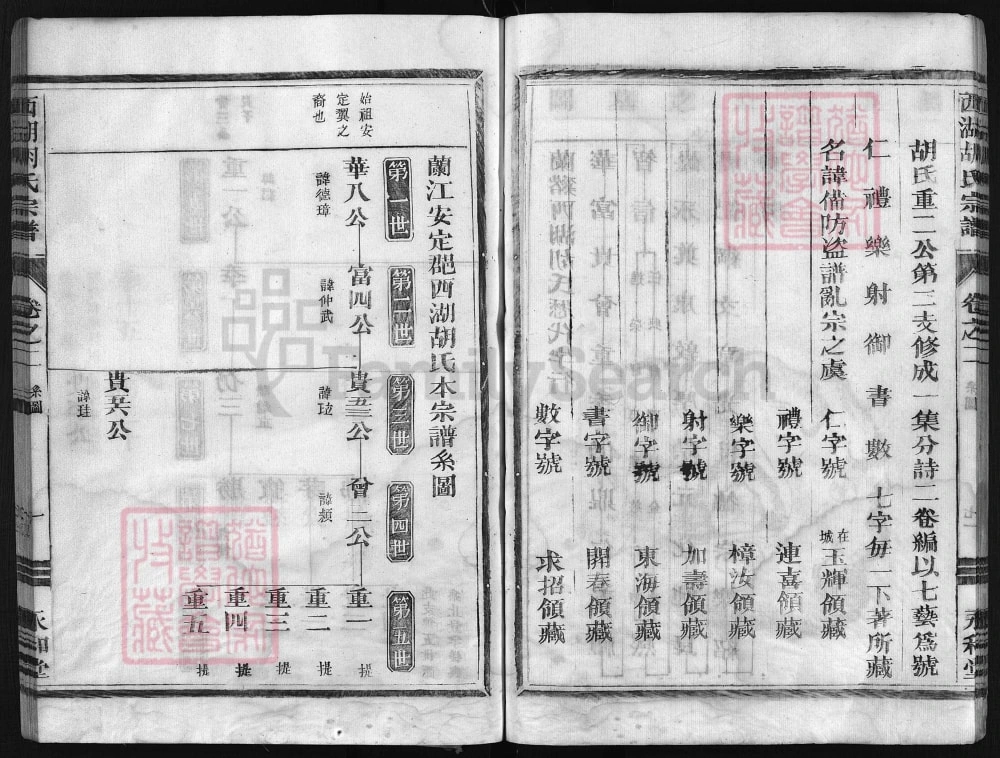 西湖胡氏宗譜
卷之一
系圖
永和堂
胡氏重二公第三支修成一集分詩二卷編以七藝爲號
仁禮樂射御書數七字每一下著所藏
名諱備防盜譜亂宗之虞
仁字號 在城玉輝領藏
禮字號 連喜領藏
樂字號 樟汝領藏
射字號 加壽領藏
御字號 東海領藏
書字號 開春領藏
數字號 求招領藏
蘭江安定郡西湖胡氏本宗譜系圖
第一世 第二世 第三世 第四世 第五世
始祖安
定翼之
裔也
華八公 富四公 貴五三公 曾二公 重一 提
諱德璋 諱仲武 諱玹 諱颎
重二 提
重三 提
重四 提
重五 提
貴共公
諱珪
西湖胡氏宗譜
卷之一
系圖
永和堂
FamilySearch